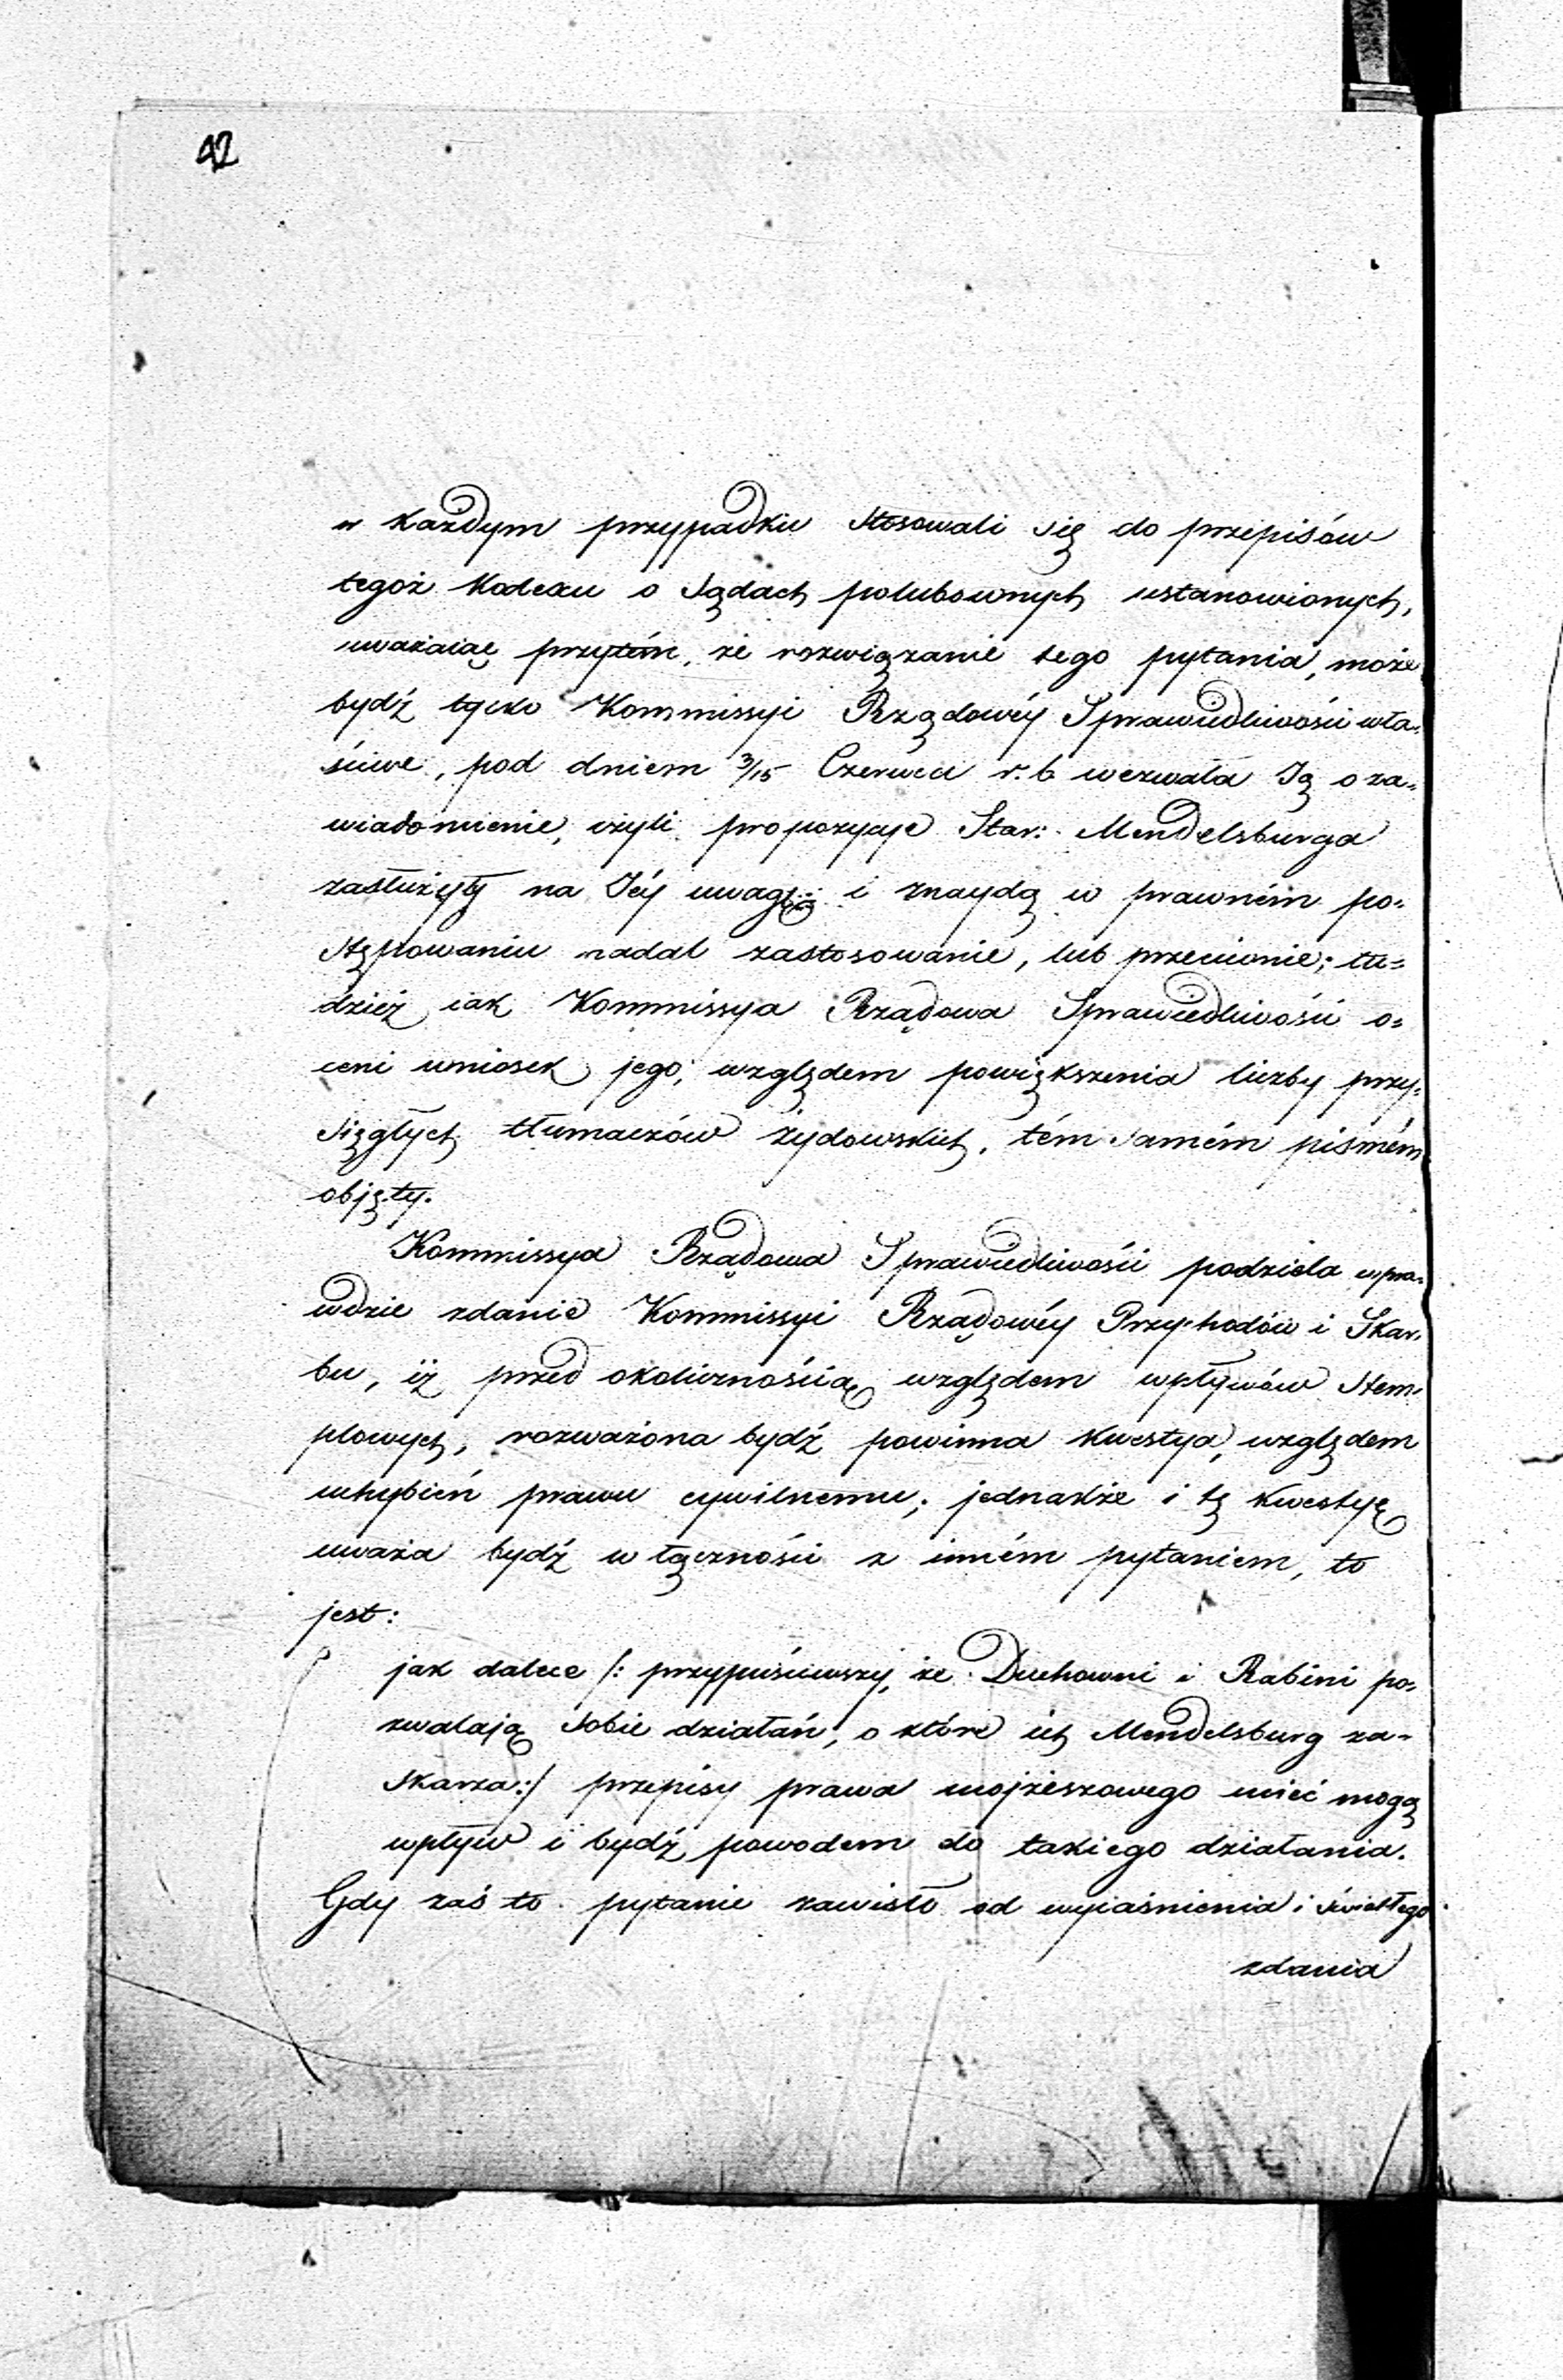 42
w każdym przypadku stosowali się do przepisów
tegoż Kodexu o Sądach polubownych ustanowionych,
uważaiąc przytém, że rozwiązanie tego pytania, może
bydź tylko Kommissyi Rządowéy Sprawiedliwości wła-
ściwe, pod dniem 3/15 Czerwca r. b. wezwała Ją o za-
wiadomienie, czyli propozycye Star: Mendelsburga
zasłużyły na Jéy uwagę i znaydą w prawném po-
stępowaniu nadal zastosowanie, lub przeciwnie; tu-
dzież iak Kommissya Rządowa Sprawiedliwości o-
ceni wniosek jego, względem powiększenia liczby przy-
sięgłych tłumaczów żydowskich, tém samém pismém
objęty.
Kommissya Rządowa Sprawiedliwości podziela wpra-
wdzie zdanie Kommissyi Rządowéy Przychodów i Skar-
bu, iż przed okolicznością względem wpływów stem-
plowych, rozważona bydź powinna kwestya, względem
uchybień prawu cywilnemu; jednakże i tę kwestyę
uważa bydź w łączności z inném pytaniem, to
jest:
jak dalece /: przypuściwszy, że Duchowni i Rabini po-
zwalają sobie działań, o które ich Mendelsburg za-
skarza :/ przepisy prawa mojżeszowego mieć mogą
wpływ i bydź powodem do takiego działania.
Gdy zaś to pytanie zawisło od wyiaśnienia i światłego
zdania